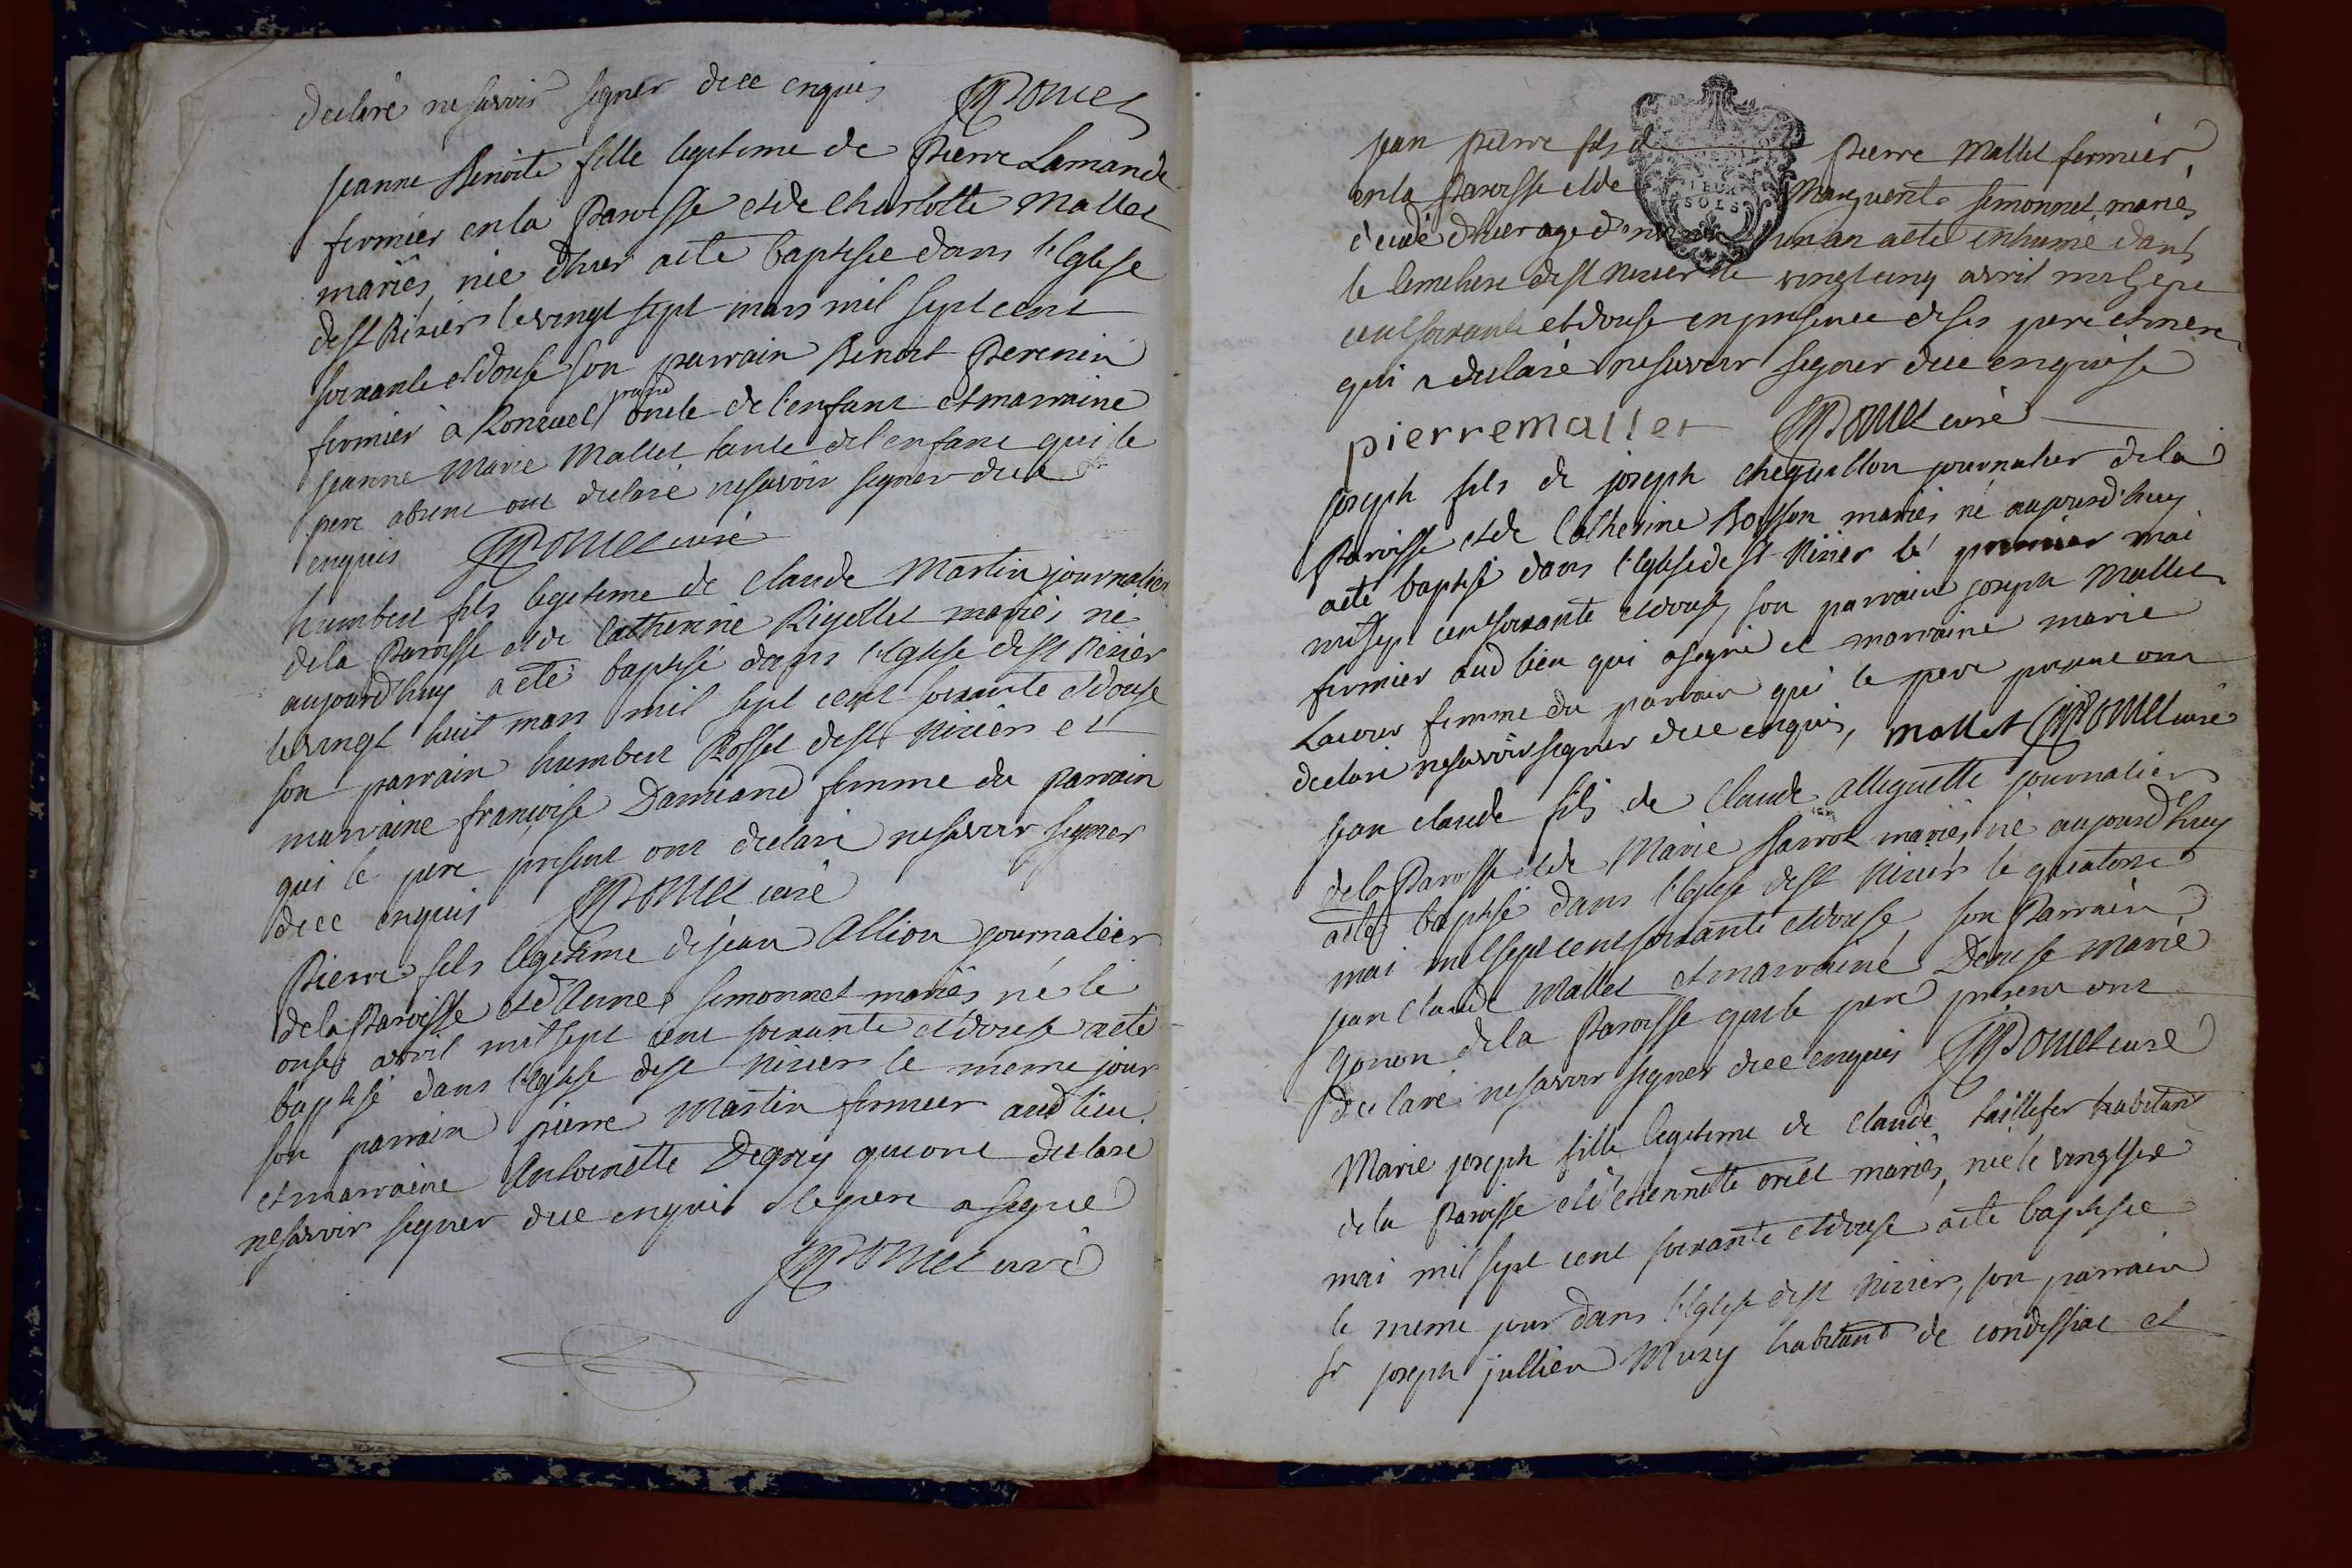 declaré ne savoir signer de ce enquis JM Pomet
jeanne Benoite fille legitime de Pierre Lamande
fermier en la Paroisse et de Charlotte Mallet
mariés, née d'hier a eté baptisée dans l'Eglise
de St Nizier le vingt sept mars mil sept cent
soixante et douse son parrain Benoit Perenin
fermier à Ronzuel grand oncle de l'enfant et marraine
jeanne Marie Mallet tante de l'enfant qui le
pere absent ont declaré ne savoir signer de ce
enquis JM Pomet curé
humbert fils legitime de Claude Martin journalier
de la Paroisse et de Catherine Rigollet mariés né
aujourd'huy a eté baptisé dans l'Eglise de St Nizier
le vingt huit mars mil sept cent soixante et douse
son parrain humbert Rosset de St Nizier et
marraine françoise Damiand femme du parrain
qui le pere present ont declaré ne savoir signer
de ce enquis JM Pomet curé
Pierre fils legitime de jean Allion journalier
de la Paroisse et d'Anne simonnet mariés né le
onse avril mil sept cent soixante et douse a eté
baptisé dans l'Eglise de St Nizier le meme jour
son parrain pierre Martin fermier aud lieu
et marraine Antoinette Degrey qui ont declaré
ne savoir signer de ce enquis le pere a signé
JM Pomet curé
jean pierre fils d pierre Mallet fermier
en la Paroisse et de Marguerite simonnet mariés
decedé d'hier agé d'un an a eté inhumé dans
le cimetiere de St Nizier le vingt cinq avril mil sept
cent soixante et douse en presence de ses pere et mere
qui a declaré ne savoir signer de ce enquise
pierre mallet JM Pomet curé
joseph fils de joseph chequillon journalier de la
Paroisse et de Catherine Bosson mariés né aujourd'huy
a eté baptisé dans l'Eglise de St Nizier le premier mai
mil sept cent soixante et douse, son parrain joseph Mallet
fermier aud lieu qui a signé et marraine marie
Lacour femme du parrain qui le pere present ont
declaré ne savoir signer de ce enquis, mallet JM Pomet curé
jean claude fils de Claude alliguette journalier
de la Paroisse et de Marie sarrot mariés né aujourd'huy
a eté baptisé dans l'Eglise de St Nizier le quatorse
mai mil sept cent soixante et douse, son Parrain
jean Claude Mallet et marraine Denise Marie
Gonon de la Paroisse qui le pere present ont
declaré ne savoir signer de ce enquis JM Pomet curé
Marie joseph fille legitime de Claude taillefer habitant
de la Paroisse et d'etiennette oriet mariés, née le vingt six
mai mil sept cent soixante et douse a eté baptisée
le meme jour dans l'Eglise de St Nizier, son parrain
sr joseph jullien Muzy habitant de condessiat et